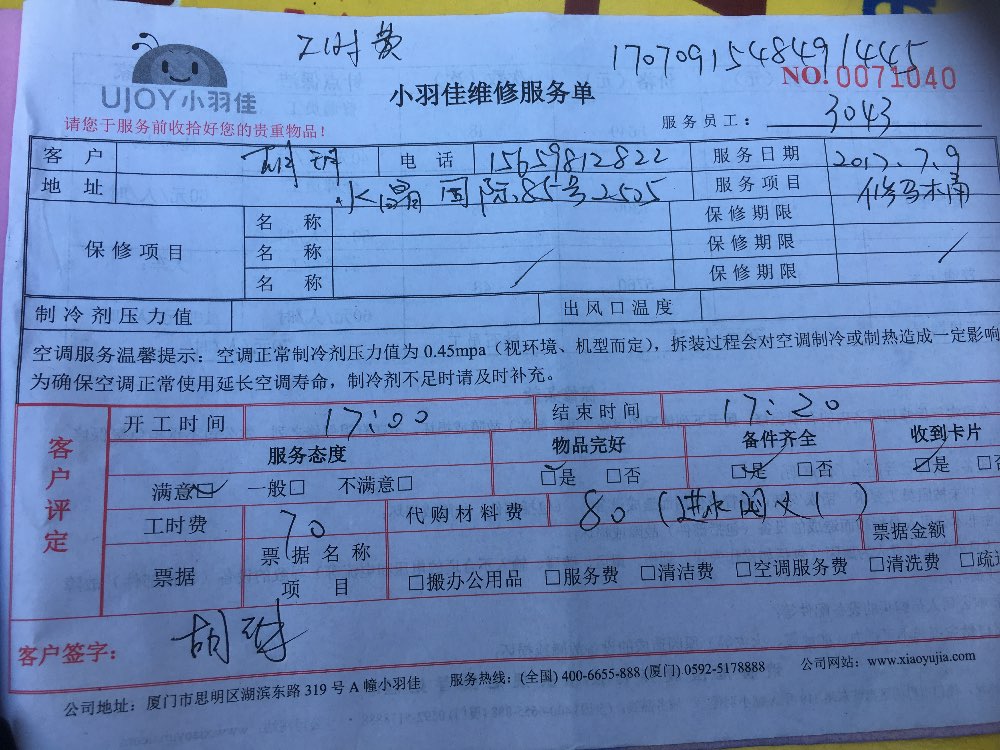 工时费 170709154849144​5
UJOY小羽佳 小羽佳维修服务单 NO. 0071040
请您于服务前收拾好您的贵重物品! 服务员工: 3043
客户 电话 15659812822 服务日期 2017.7.9
地址 水晶国际85号2505 服务项目 修马木桶
保修项目 名称 保修期限
名称 保修期限
名称 保修期限
制冷剂压力值 出风口温度
空调服务温馨提示:空调正常制冷剂压力值为 0.45mpa(视环境、机型而定),拆装过程会对空调制冷或制热造成一定影响
为确保空调正常使用延长空调寿命,制冷剂不足时请及时补充。
客户评定 开工时间 17:00 结束时间 17:20
服务态度 物品完好 备件齐全 收到卡片
满意☑ 一般□ 不满意□ ☑是 □否 ☑是 □否 ☑是 □否
工时费 70 代购材料费 80(进水阀×1)
票据 票据名称 票据金额
项目 □搬办公用品 □服务费 □清洁费 □空调服务费 □清洗费 □疏通
客户签字:胡
公司地址:厦门市思明区湖滨东路 319 号 A 幢小羽佳 服务热线:(全国) 400-6655-888 (厦门) 0592-5178888 公司网站:www.xiaoyujia.com